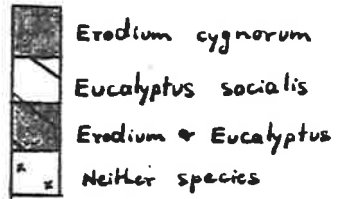 Erodium cygnorum
Eucalyptus socialis
Erodium & Eucalyptus
Neither species